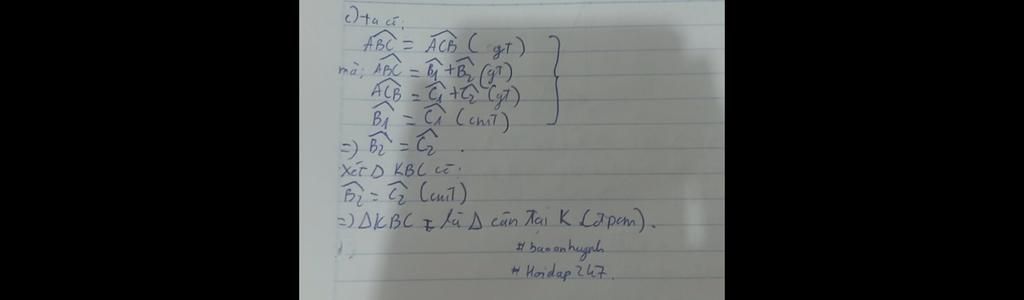 c) ta có:
ABC = ACB (gt)
mà; ABC = B1 + B2 (gt)
ACB = C1 + C2 (gt)
B1 = C1 (cmT)
=> B2 = C2.
Xét Δ KBC có:
B2 = C2 (cmT)
=> ΔKBC là Δ cân Tại K (đpcm).
#baoanhuynh
#Hoidap247.